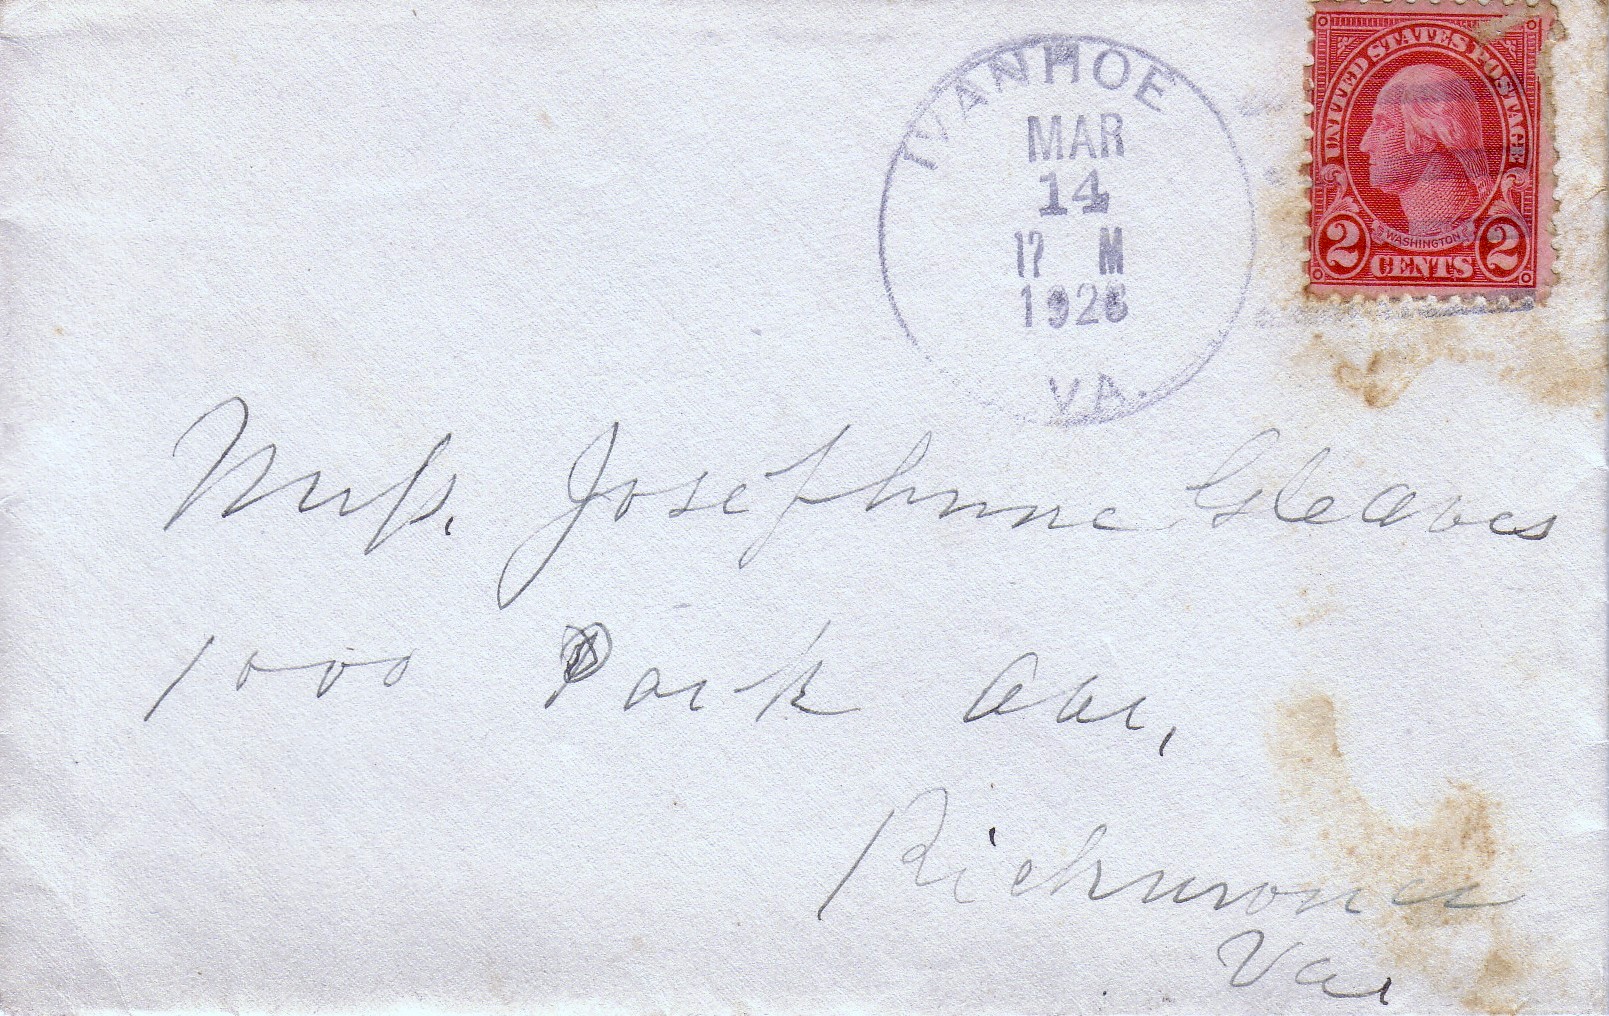 IVANHOE
MAR
14
M
1928
VA.
UNITED STATES POSTAGE
WASHINGTON
2 CENTS 2
Miss. Josephine Gleaves
1000 Park Ave,
Richmond
Va,